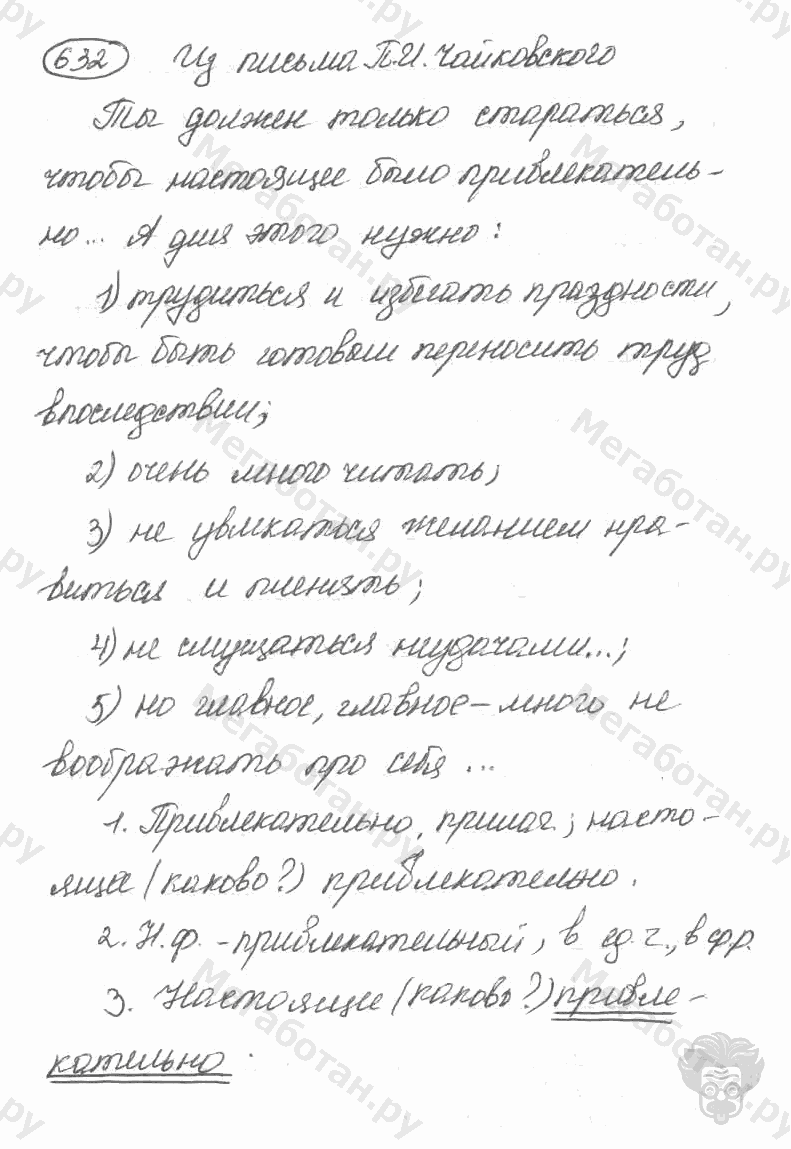 632 Из письма П.И. Чайковского
Ты должен только стараться,
чтобы настоящее было привлекатель-
но... А для этого нужно:
1) трудиться и избегать праздности,
чтобы быть готовым переносить труд
впоследствии;
2) очень много читать;
3) не увлекаться желанием нра-
виться и пленять;
4) не смущаться неудачами...;
5) но главное, главное – много не
воображать про себя ...
1. Привлекательно, прилаг.; насто-
ящее (каково?) привлекательно.
2. Н.ф. – привлекательный, в ед.ч., в ср.р.
3. Настоящее (каково?) привле-
кательно.
Мегаботан.ру